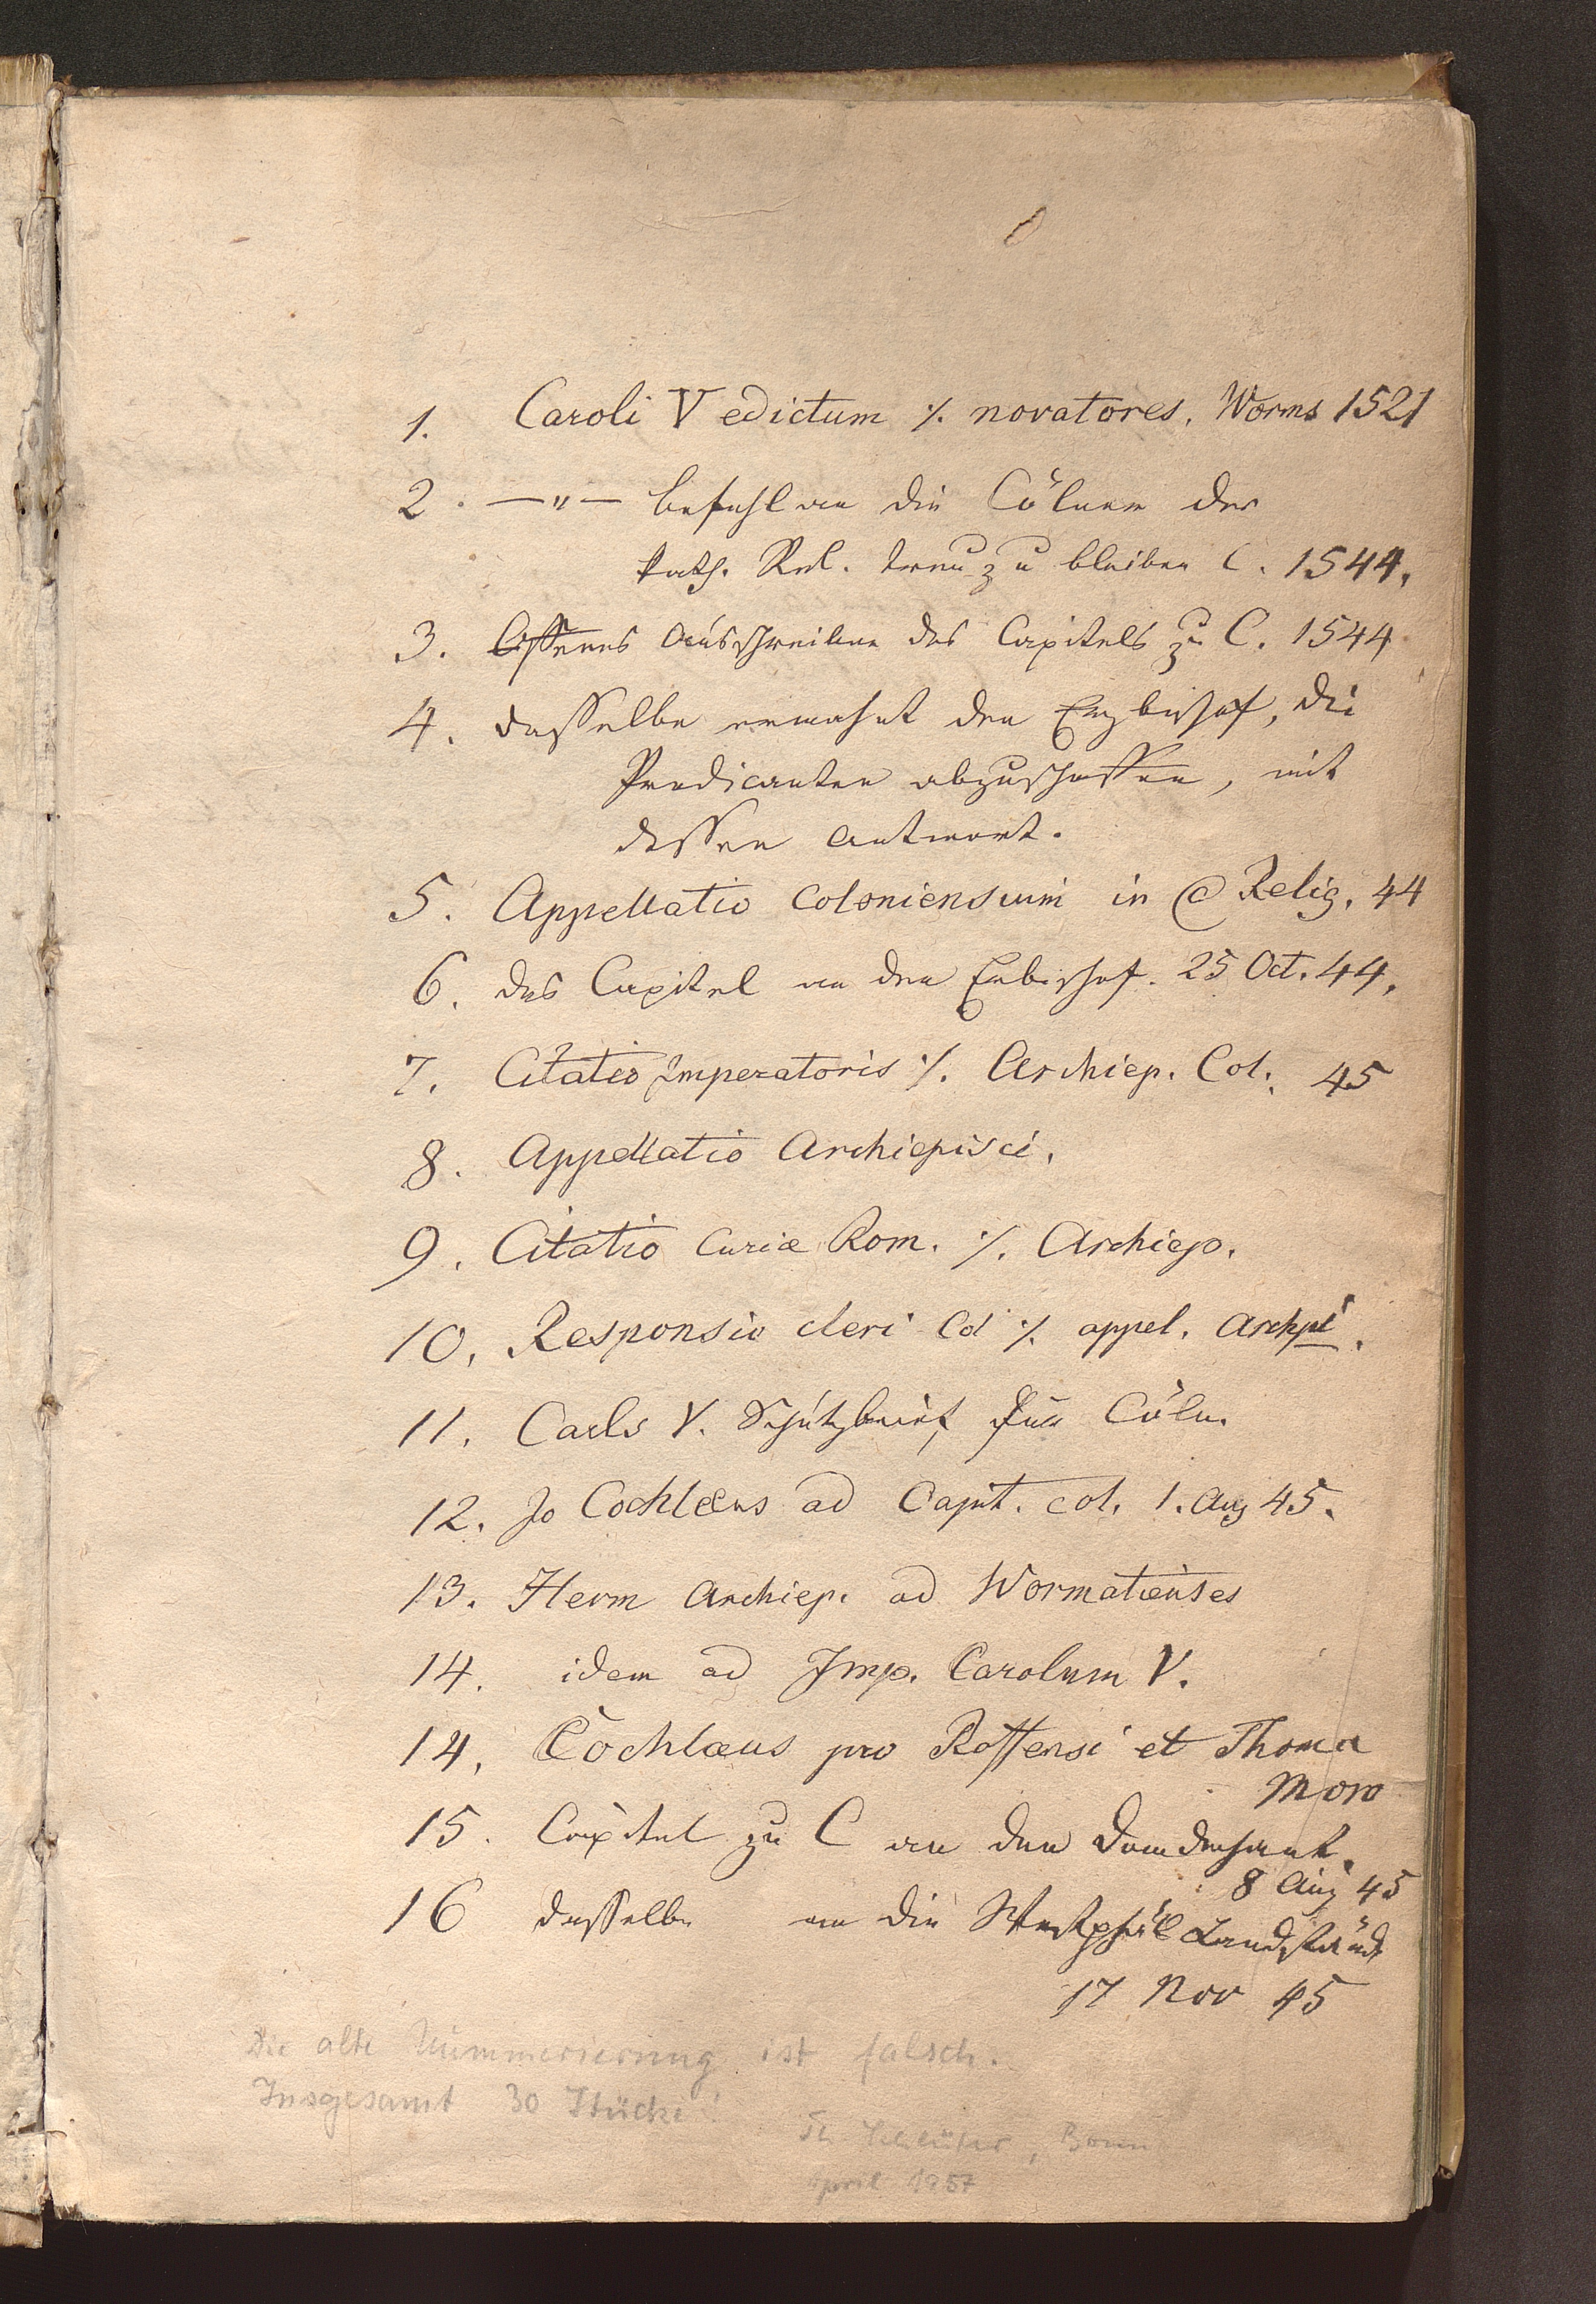 1. Caroli V edictum ./. novatores. Worms 1521
2. —"— befehl an die Cölner der
kath. Rel. treu zu bleiben C. 1544.
3. Offenes Ausschreiben des Capitels zu C. 1544
4. dasselbe ermahnt den Erzbischof, die
Predicanten abzuschaffen, mit
dessen Antwort.
5. Appellatio Coloniensium in C Relig. 44
6. das Capitel an den Erbischof. 25 Oct. 44.
7. Citatio Imperatoris ./. Archiep. Col. 45
8. Appellatio Archiepisci.
9. Citatio Curiæ Rom. ./. Archiep.
10. Responsio cleri Col ./. appel. Archpi.
11. Carls V. Schutzbrief für Cöln.
12. Jo Cochlæus ad Capit. col. 1. Aug 45.
13. Herm Archiep. ad Wormatienses
14. idem ad Imp. Carolum V.
14. Cochlæus pro Roffensi et Thoma
Moro
15. Capitel zu C an den Domdechant.
8 Aug 45
16 dasselbe an die Westphäl Landstände
17 Nov 45
Die alte Nummerierung ist falsch.
Insgesamt 30 Stücke!
Th. Schlüter, Bonn
April 1957